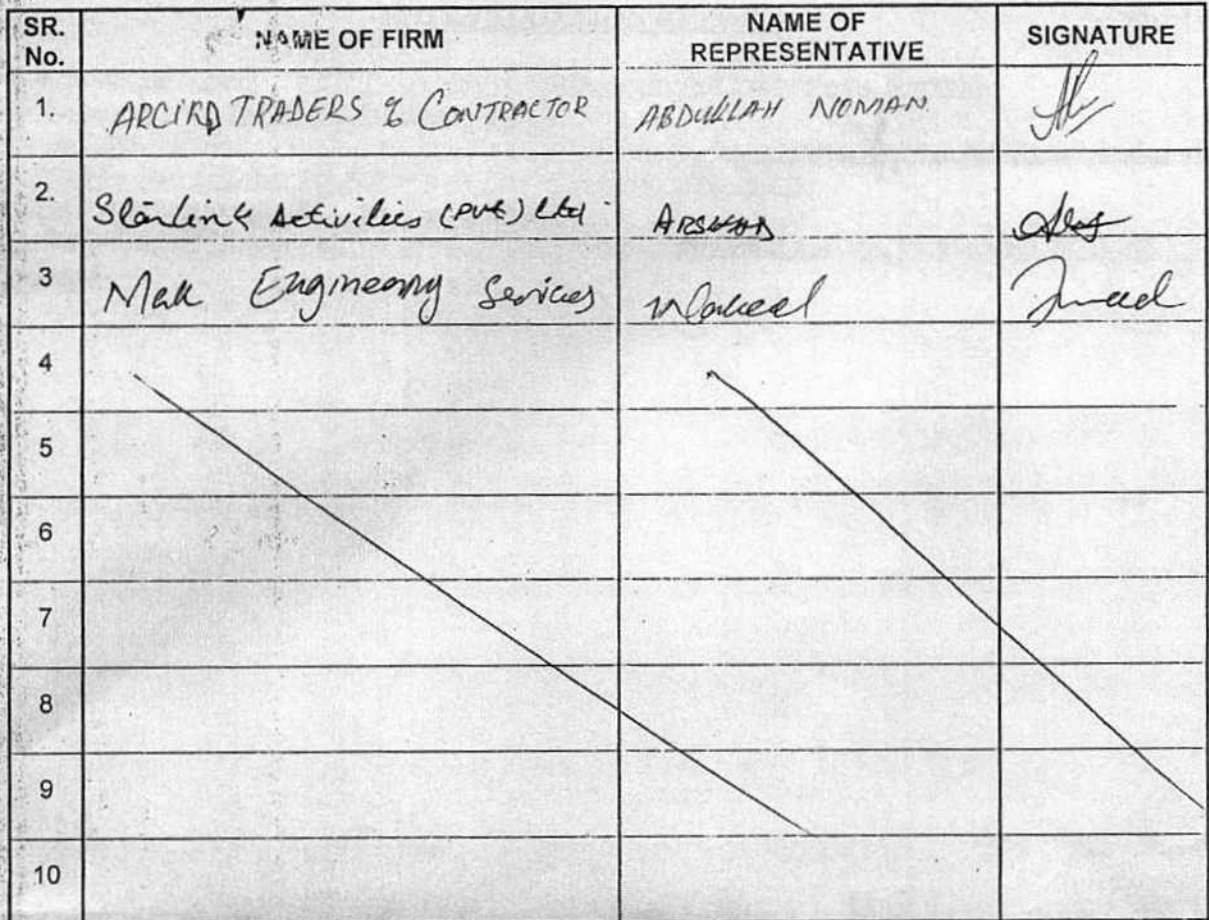 SR. No. NAME OF FIRM NAME OF REPRESENTATIVE SIGNATURE
1. TRADERS & CONTRACTOR ABDULLAH NOMAN
2. Starlink Activities (Pvt) Ltd ARSHAD
3 Mak Engineering Services
4
5
6
7
8
9
10